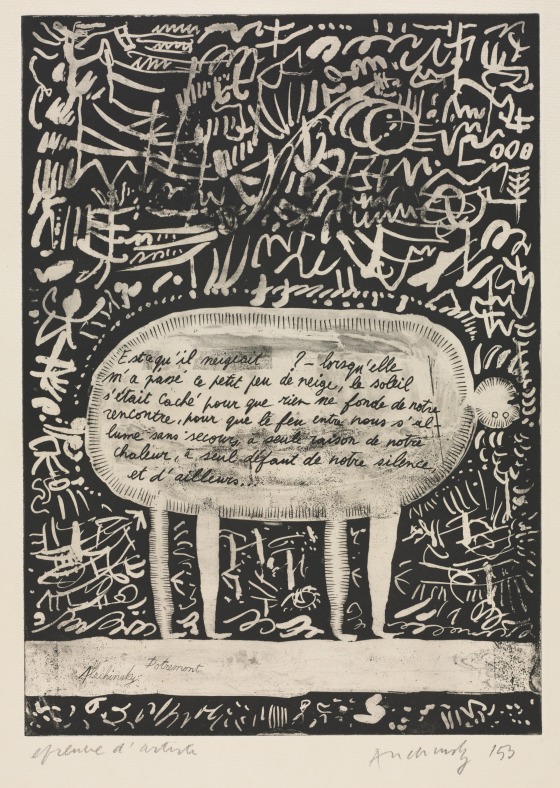 Estce qu'il neigeait ? – lorsqu'elle
m'a passé ce petit peu de neige, le soleil
s'était caché pour que rien ne fonde de notre
rencontre, pour que le feu entre nous s'al-
lume sans secours, à seule raison de notre
chaleur, à seul défaut de notre silence,
et d'ailleurs...
Alechinsky. Dotremont
épreuve d'artiste Alechinsky 153